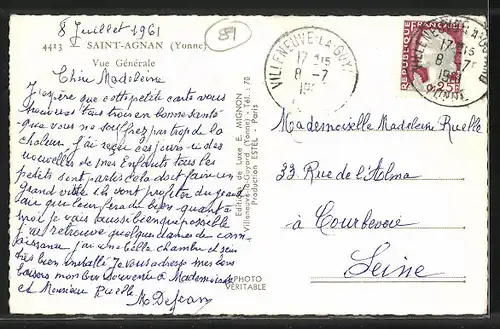 8 Juillet 1961
4423 SAINT-AGNAN (Yonne)
Vue Générale
Chère Madeleine
J'espère que cette petite carte vous
trouvera tous trois en bonne santé
que vous ne souffrez pas trop de la
chaleur. j'ai reçu ces jours-ci des
nouvelles de mes Enfants tous les
petits sont partis cela doit faire un
grand vide ils vont profiter du grand
air qui leur fera du bien. quant à
moi je vais aussi bien que possible
j'ai retrouvé quelques dames de con
naissance j'ai une belle chambre et suis
très bien installé Je vous adresse mes bons
baisers mon bon souvenir à Mademoiselle
et Monsieur Ruelle
M Dejean
89
Edition de Luxe E. MIGNON
Villeneuve-la-Guyard (Yonne) - Tél. : 70
Production ESTEL - Paris
PHOTO
VÉRITABLE
VILLENEUVE-LA-GUY
17 15
8 - 7
19
REPUBLIQUE FRANÇAISE
0,25
17 15
8
19
YONNE
Mademoiselle Madeleine Ruelle
33 Rue de l'Alma
à Courbevoie
Seine